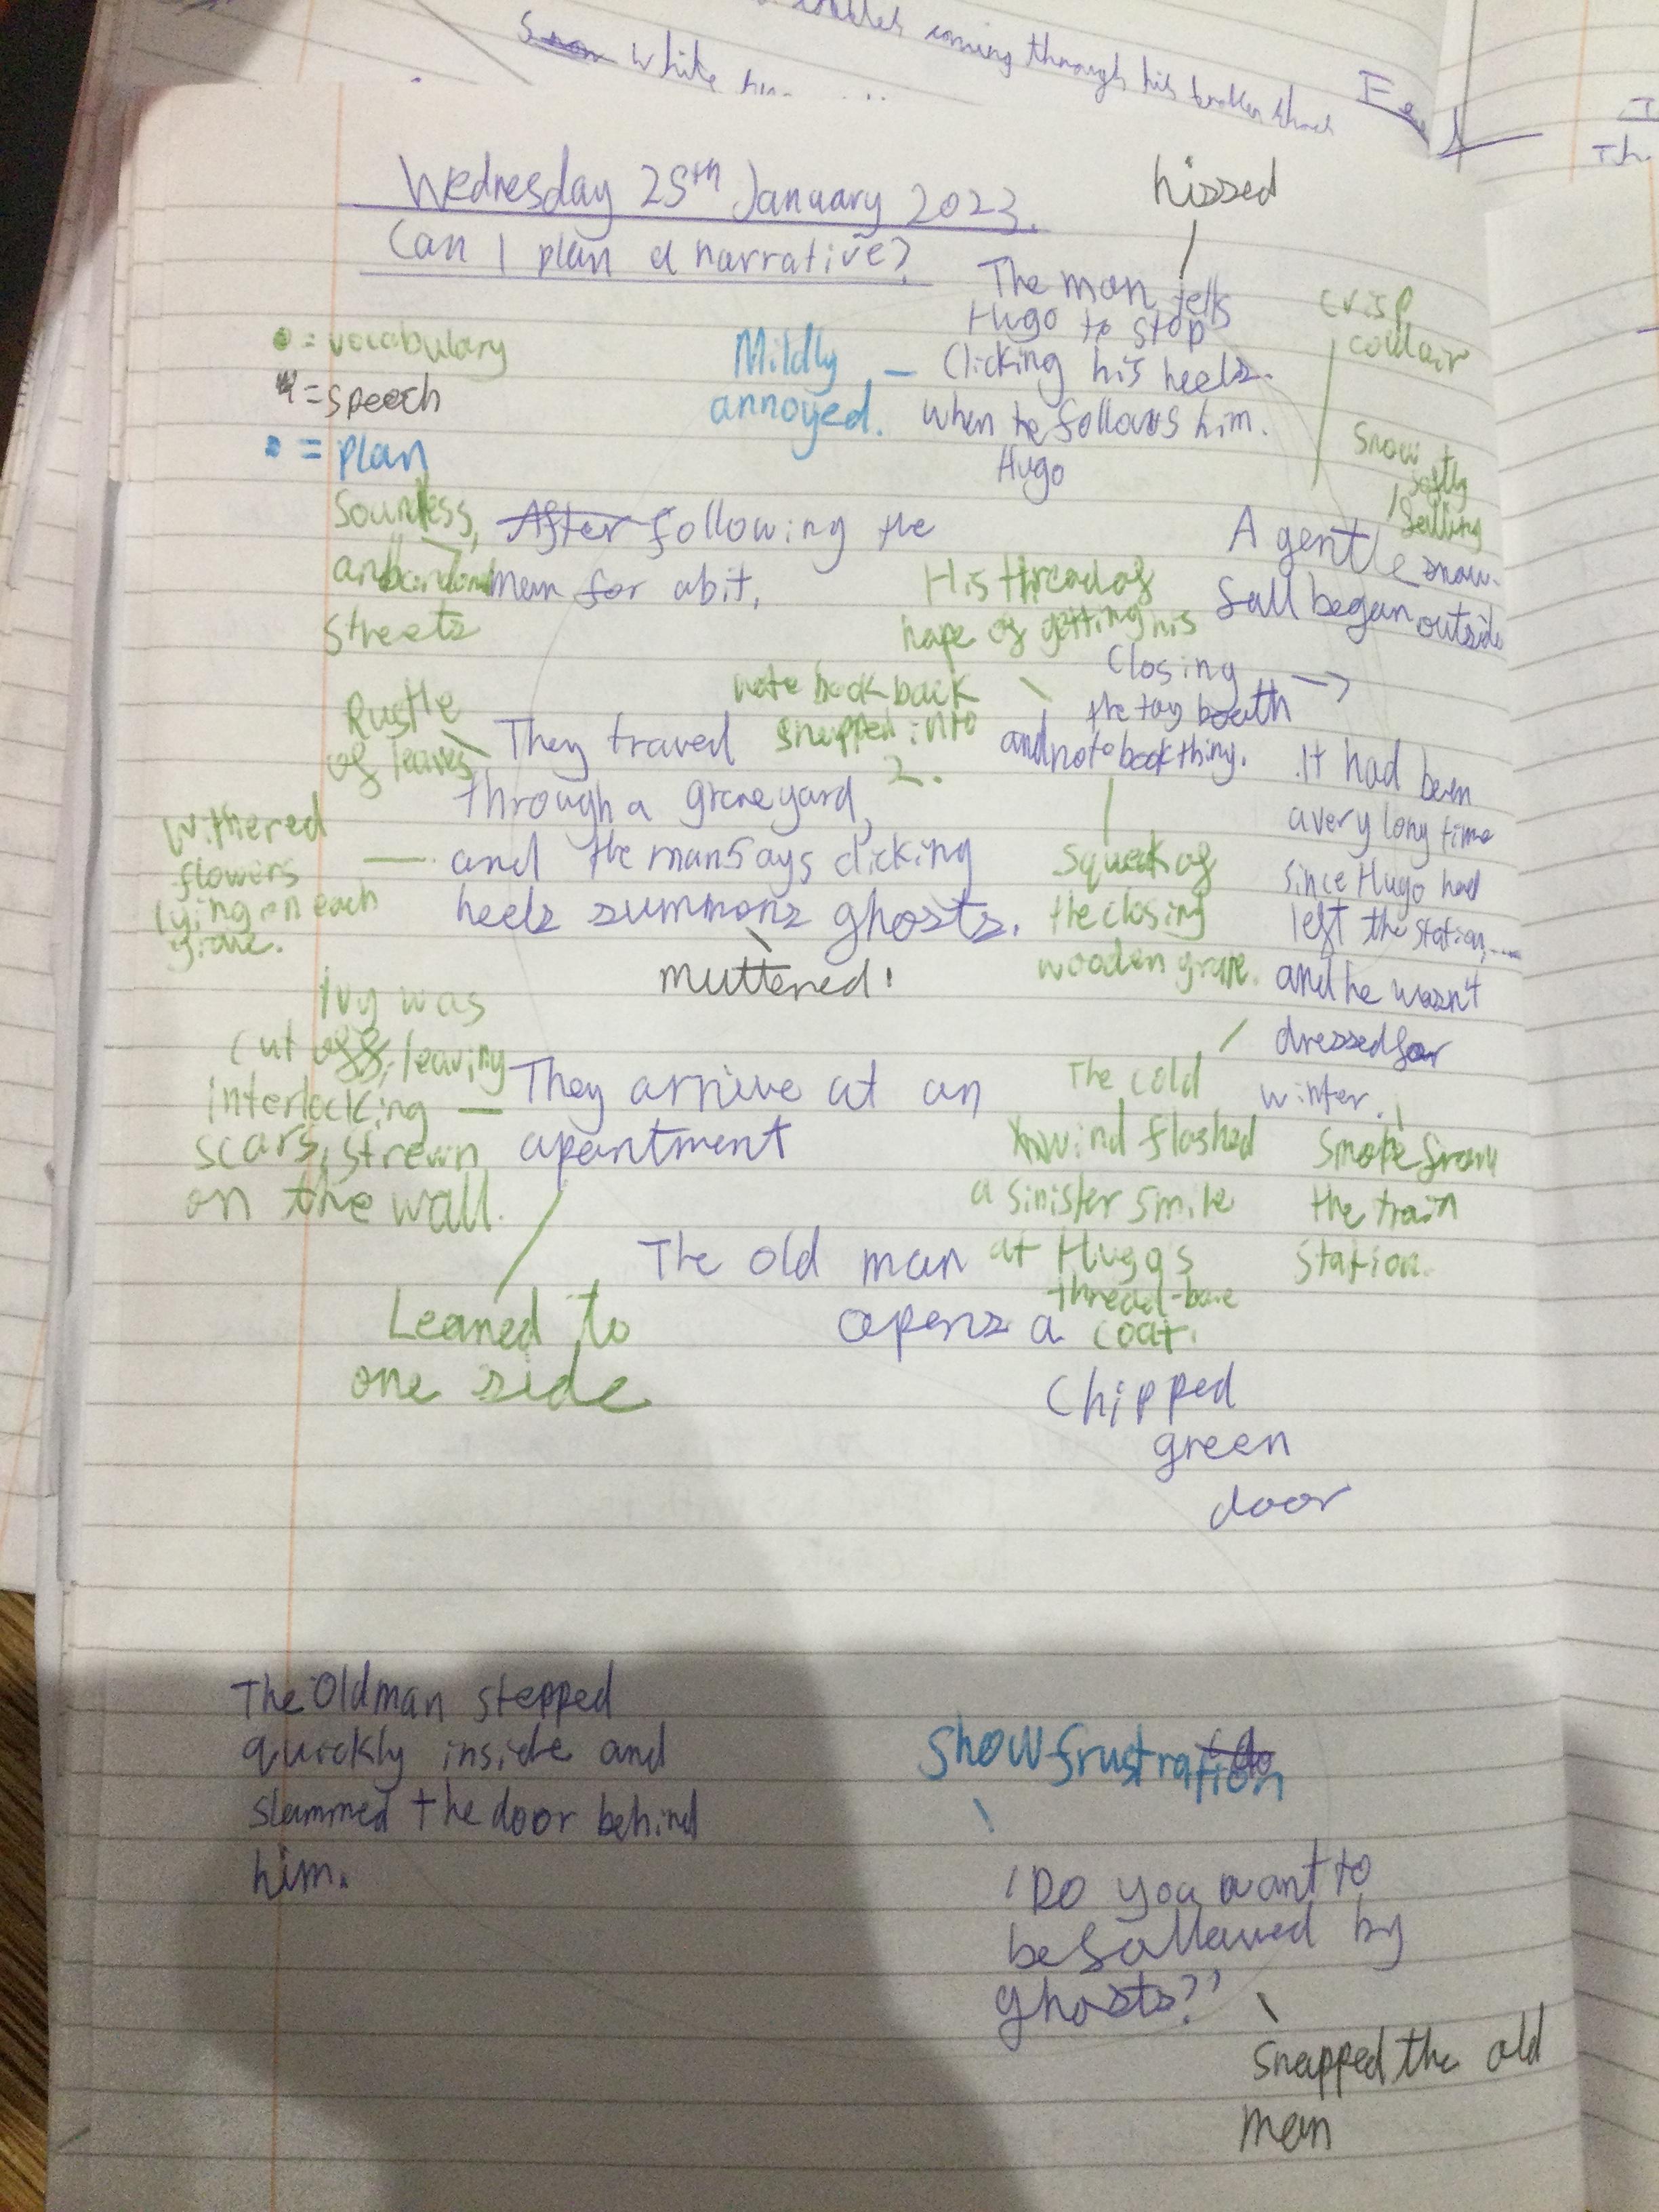 coming through his broken shoes
white
Wednesday 25th January 2023.
Can I plan a narrative?
• = vocabulary
= speech
• = plan
hissed
The man tells
Hugo to stop
Clicking his heels.
when he follows him.
Hugo
Mildly
annoyed.
crisp
cold air
Snow
softly
falling
Soundless,
streets
After following the
man for a bit,
A gentle snow-
fall began outside
His thread of
hope of getting his
note book back
snapped into
2.
Closing
the toy booth
and notebook thing.
Squeak of
the closing
wooden
Rustle
of leaves
They travel
through a graveyard,
and the man says clicking
heels summons ghosts.
muttered!
Withered
flowers
lying on each
grave.
It had been
a very long time
since Hugo had
left the station....
and he wasn't
dressed for
winter.
Smoke from
the train
station.
The cold
wind flashed
a sinister smile
at Hugo's
thread-bare
coat.
Ivy was
cut off, leaving
interlocking
scars, strewn
on the wall.
They arrive at an
apartment
Leaned to
one side
The old man
opens a
Chipped
green
door
The Old man stepped
quickly inside and
slammed the door behind
him.
Show frustration
'Do you want to
be followed by
ghosts?'
snapped the old
man